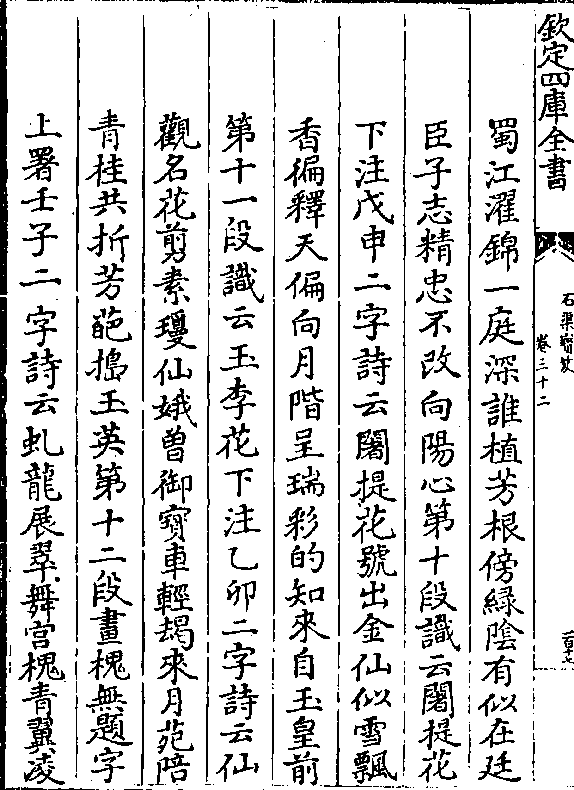 欽定四庫全書
石渠寶笈
卷三十二
蜀江濯錦一庭深誰植芳根傍緑陰有似在廷
臣子志精忠不改向陽心第十段識云闍提花
下注戊申二字詩云闍提花號出金仙似雪飄
香徧釋天偏向月階呈瑞彩的知來自玉皇前
第十一段識云玉李花下注乙卯二字詩云仙
觀名花剪素瓊仙娥曽御寳車輕朅來月苑陪
青桂共折芳葩搗玉英第十二段畫槐無題字
上署壬子二字詩云虬龍展翠舞宫槐青翼凌